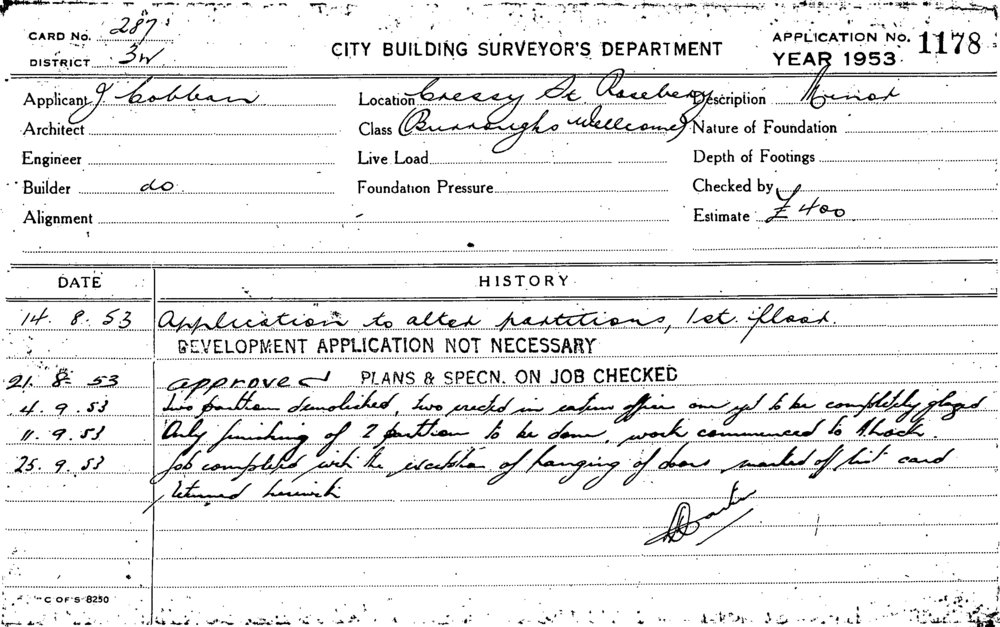 CARD NO. 287
DISTRICT 3W
CITY BUILDING SURVEYOR'S DEPARTMENT
APPLICATION NO. 1178
YEAR 1953
Applicant J Cobban
Location Cressy St Rosebery
Description Minor
Architect
Class (Burroughs Wellcome)
Nature of Foundation
Engineer
Live Load
Depth of Footings
Builder do
Foundation Pressure
Checked by
Alignment
Estimate £400
DATE HISTORY
14. 8. 53 Application to alter partitions, 1st. floor.
DEVELOPMENT APPLICATION NOT NECESSARY
21. 8. 53 approved PLANS & SPECN. ON JOB CHECKED
4. 9. 53 two partition demolished, two erected in office one yet to be completely glazed
11. 9. 53 Only finishing of 2 partition to be done, work commenced to
25. 9. 53 Job completed with the exception of hanging of doors marked off list card
returned herewith
C OF S 8250